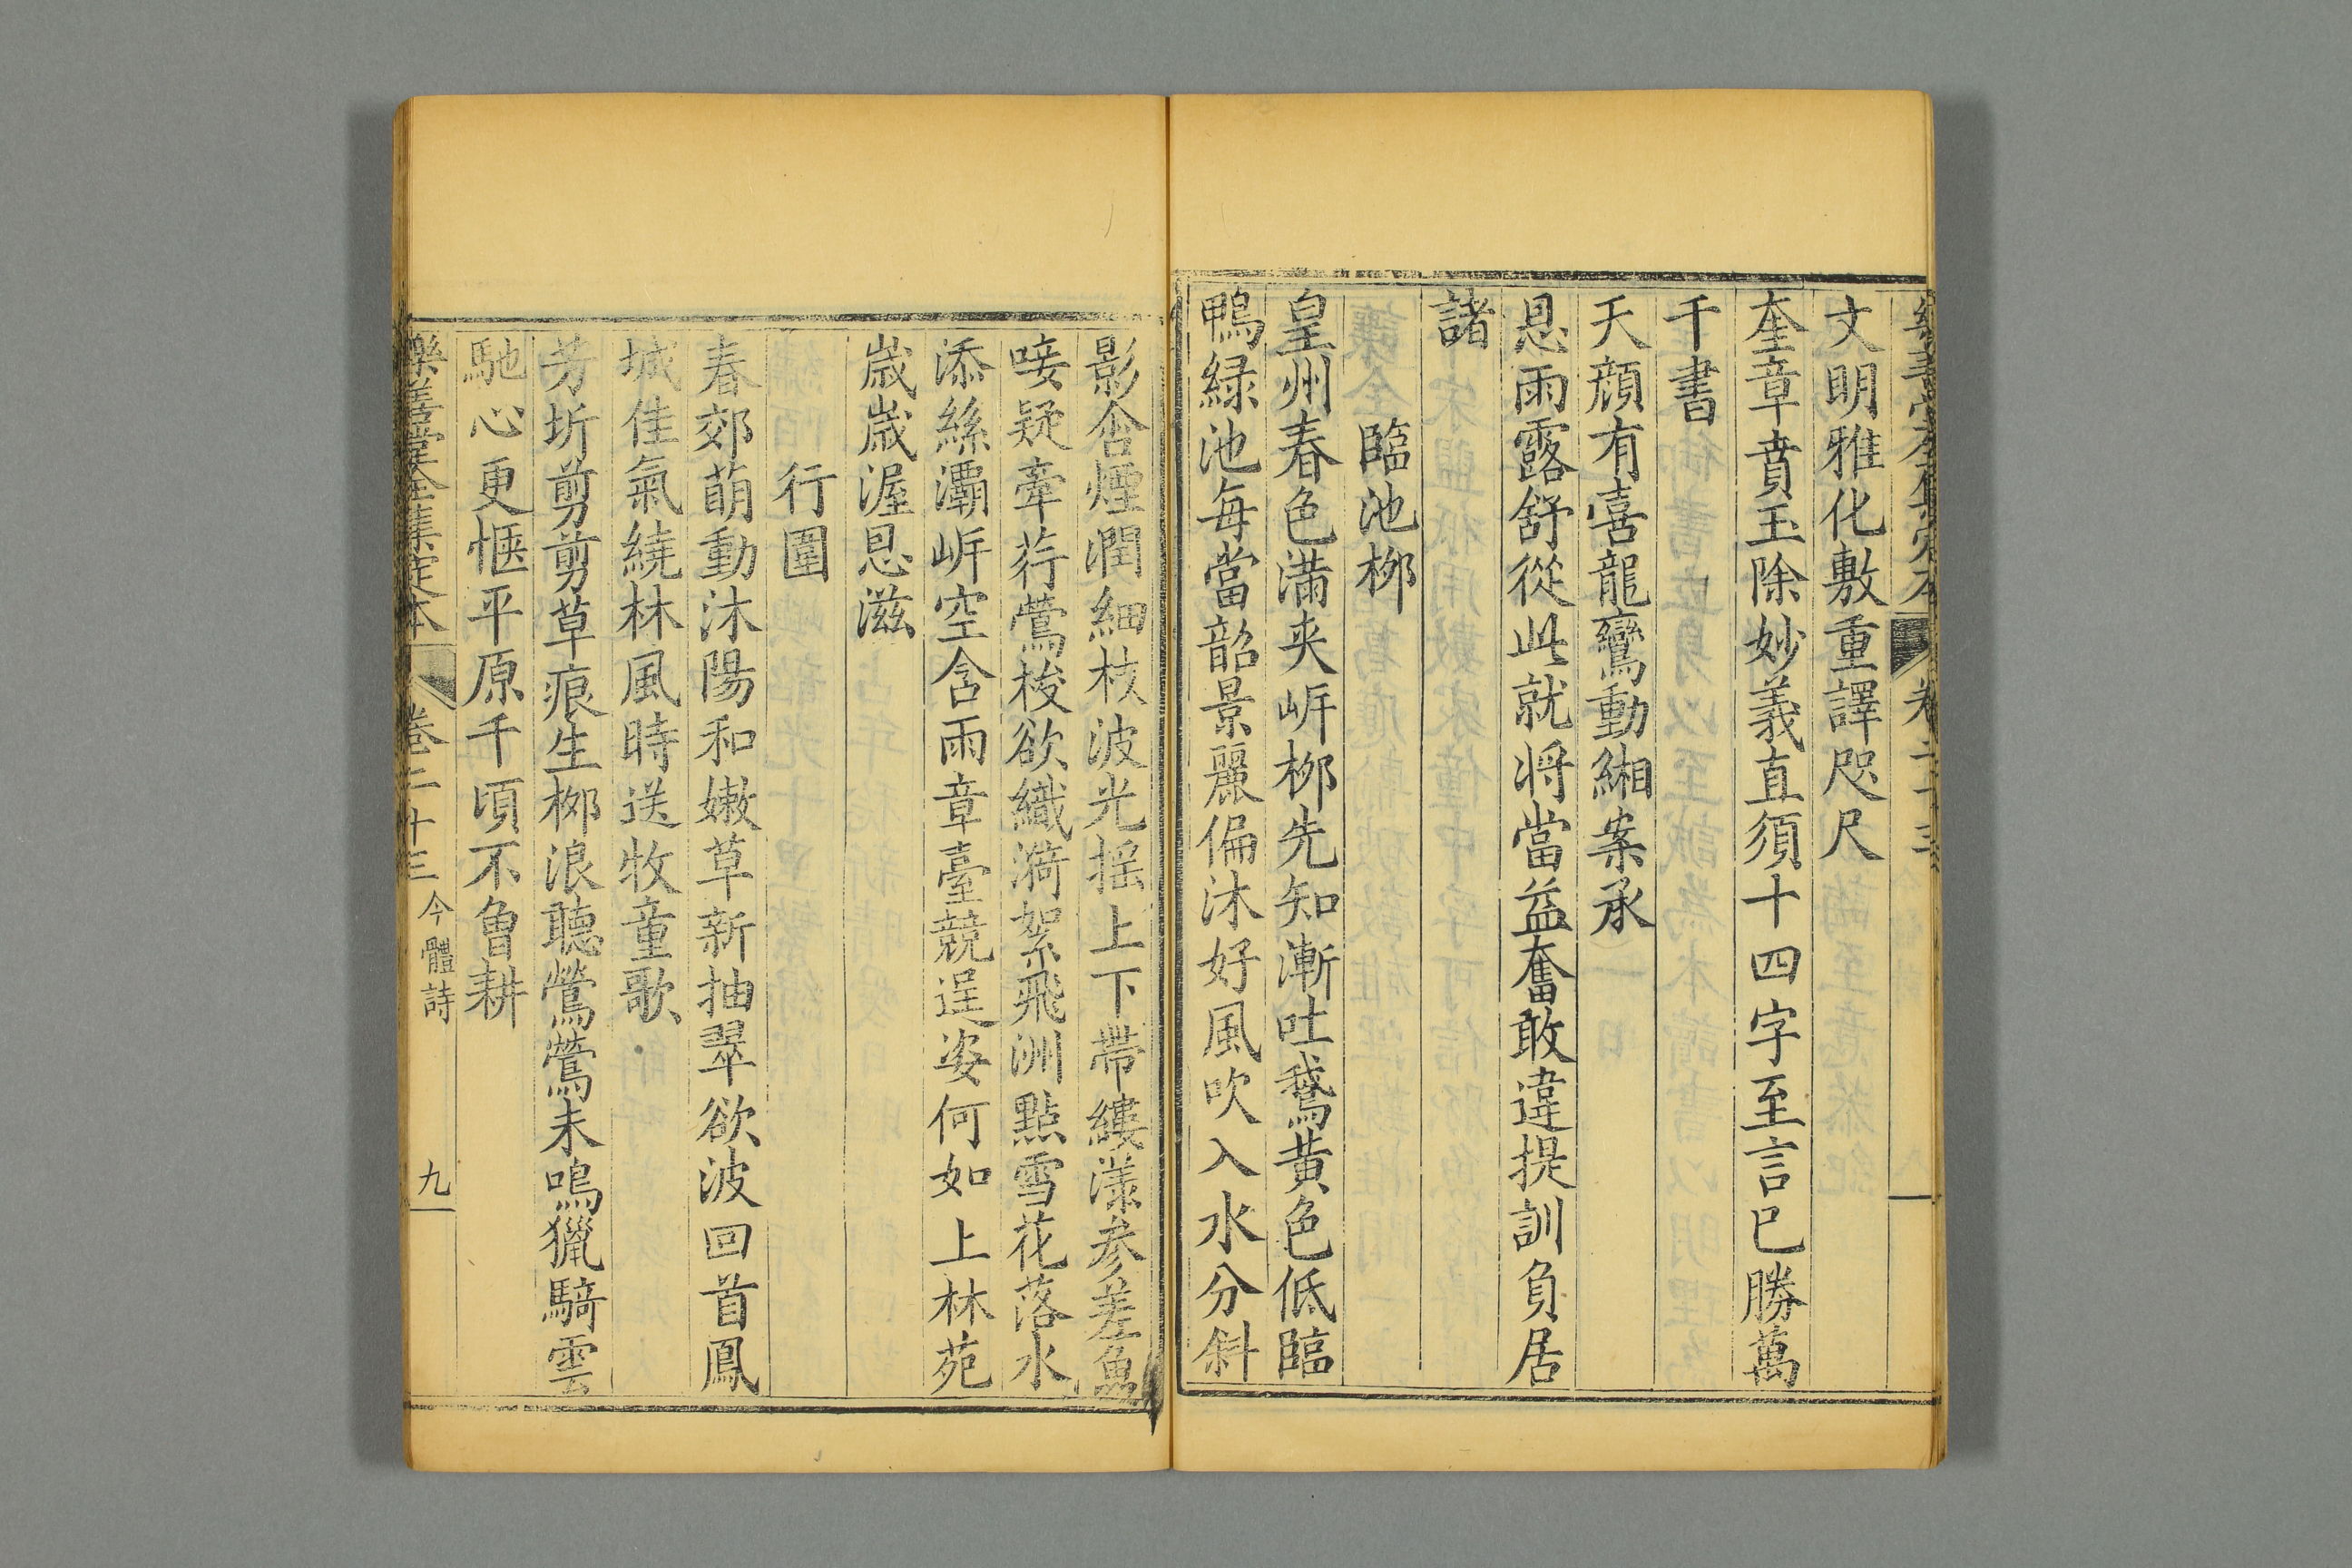 樂善堂全集定本 卷二十三
文明雅化敷重譯咫尺
奎章賁玉除妙義直須十四字至言已勝萬
千書
天顔有喜龍鸞動緗案承
恩雨露舒從此就將當益奮敢違提訓負居
諸
臨池栁
皇州春色滿夹㟁栁先知漸吐鵞黄色低臨
鴨緑池每當韶景麗偏沐好風吹入水分斜
影含煙潤細枝波光摇上下帶縷漾参差魚
唼疑牽荇鶯梭欲織漪絮飛洲點雪花落水
添絲灞㟁空含雨章臺競逞姿何如上林苑
嵗嵗渥恩滋
行圍
春郊萌動沐陽和嫩草新抽翠欲波回首鳳
城佳氣繞林風時送牧童歌
芳圻剪剪草痕生栁浪聽鶯鶯未鳴獵騎雲
馳心更愜平原千頃不曾耕
樂善堂全集定本 卷二十三 今體詩 九